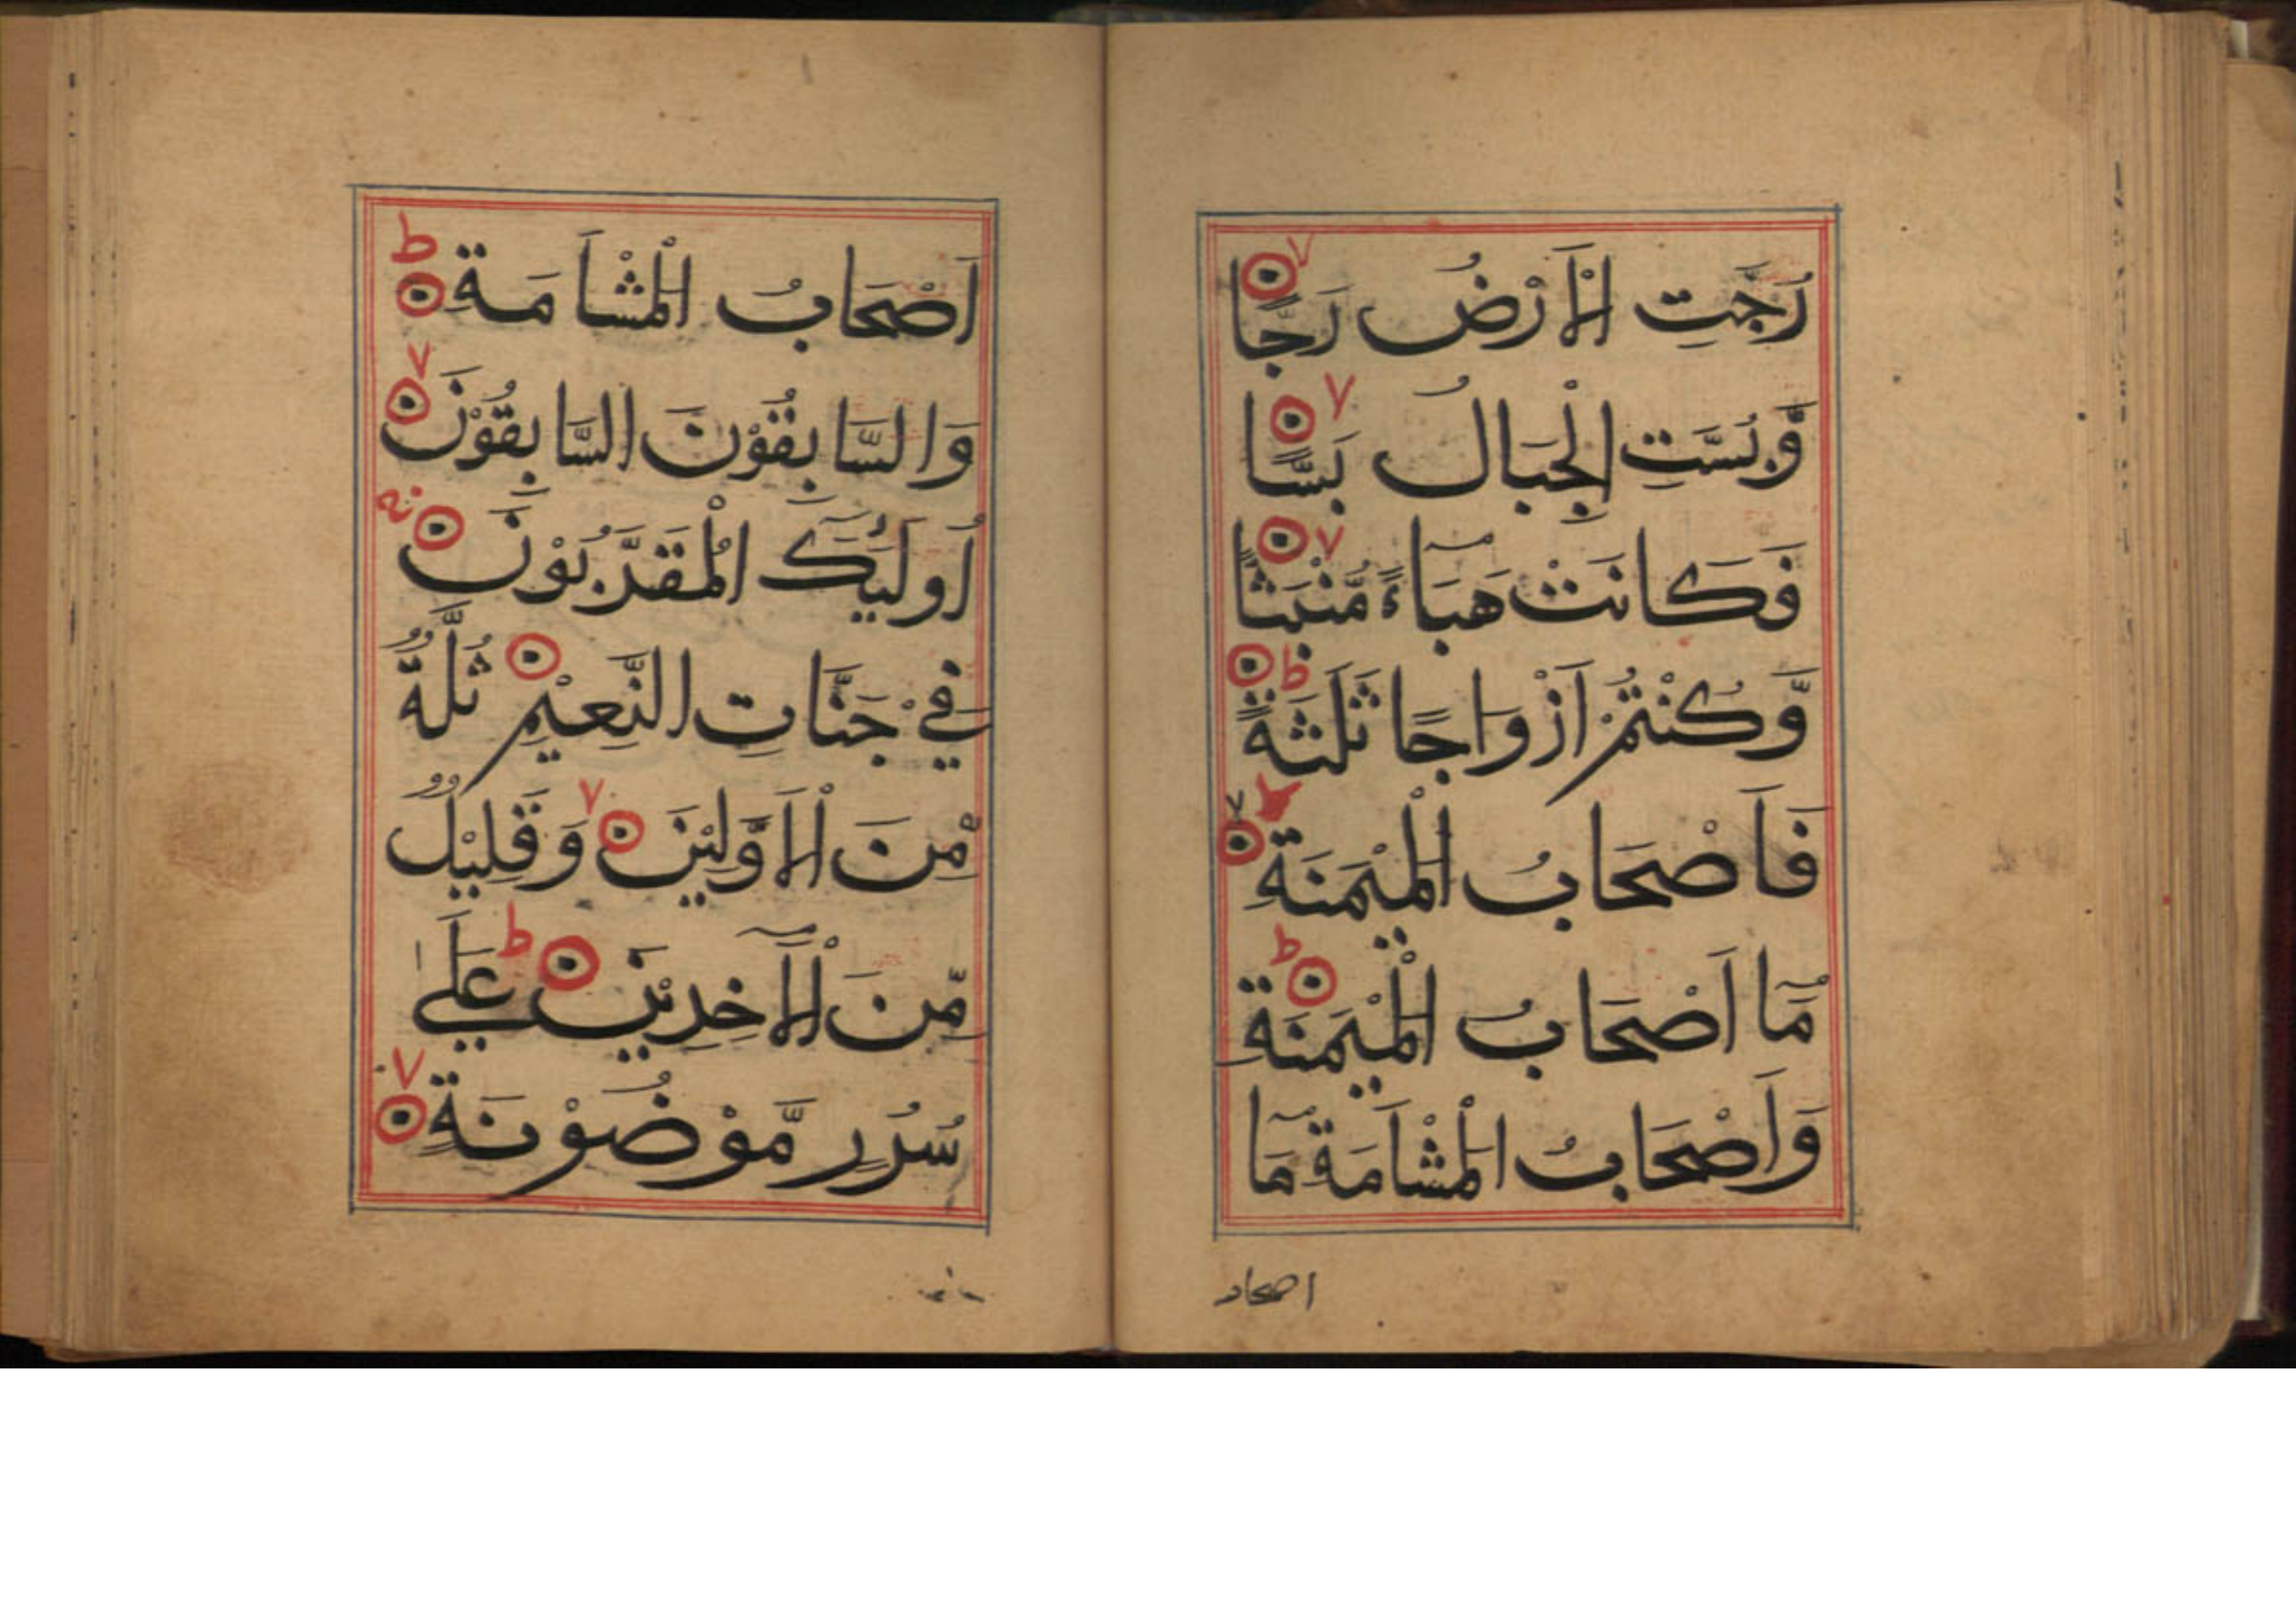 رُجَّتِ الْاَرْضُ رَجًّا
وَّبُسَّتِ الْجِبَالُ بَسًّا
فَكَانَتْ هَبَآءً مُّنْبَثًّا
وَّكُنْتُمْ اَزْوَاجًا ثَلٰثَةً
فَاَصْحَابُ الْمَيْمَنَةِ
مَآ اَصْحَابُ الْمَيْمَنَةِ
وَاَصْحَابُ الْمَشْاَمَةِ مَآ
اصحاب
اَصْحَابُ الْمَشْاَمَةِ
وَالسَّابِقُوْنَ السَّابِقُوْنَ
اُولٰٓئِكَ الْمُقَرَّبُوْنَ
فِيْ جَنَّاتِ النَّعِيْمِ ثُلَّةٌ
مِّنَ الْاَوَّلِيْنَ وَقَلِيْلٌ
مِّنَ الْاٰخِرِيْنَ عَلٰي
سُرُرٍ مَّوْضُوْنَةٍ